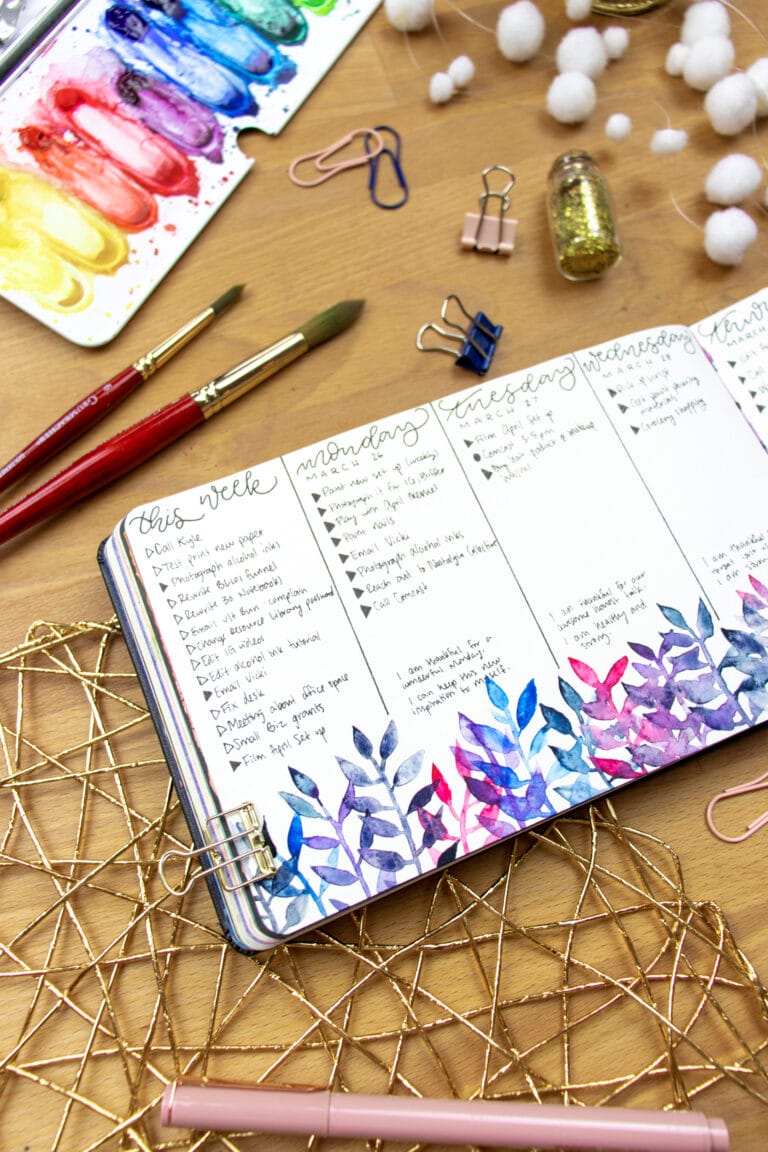 GRUMBACHER
this week
Call Kyle
Test print new paper
Photograph alcohol inks
Rewrite BLC01 funnel
Rewrite 30 Notebooks
Email ult Bun. complain
Change Resource Library password
Edit IG videos
Edit alcohol ink tutorial
Email Vicki
Fix desk
Meeting about office space
Small Biz grants
Film April Set up
monday
MARCH 26
Paint new set up (weekly)
Photograph it for IG, Buffer
Play with April theme
Paint nails
Email Vicki
Photograph alcohol inks
Reach out to Nostalgic Collective
Call Comcast
I am thankful for a
wonderful monday.
I can keep this new
inspiration to myself.
tuesday
MARCH 27
Film April Set up
Comcast 3-5pm
Buy hair product & makeup
I am thankful for our
awesome honest talk.
I am healthy and
strong.
wednesday
MARCH 28
Pick up script
materials
Grocery shopping
I am thankful
I am strong
MARCH
Call